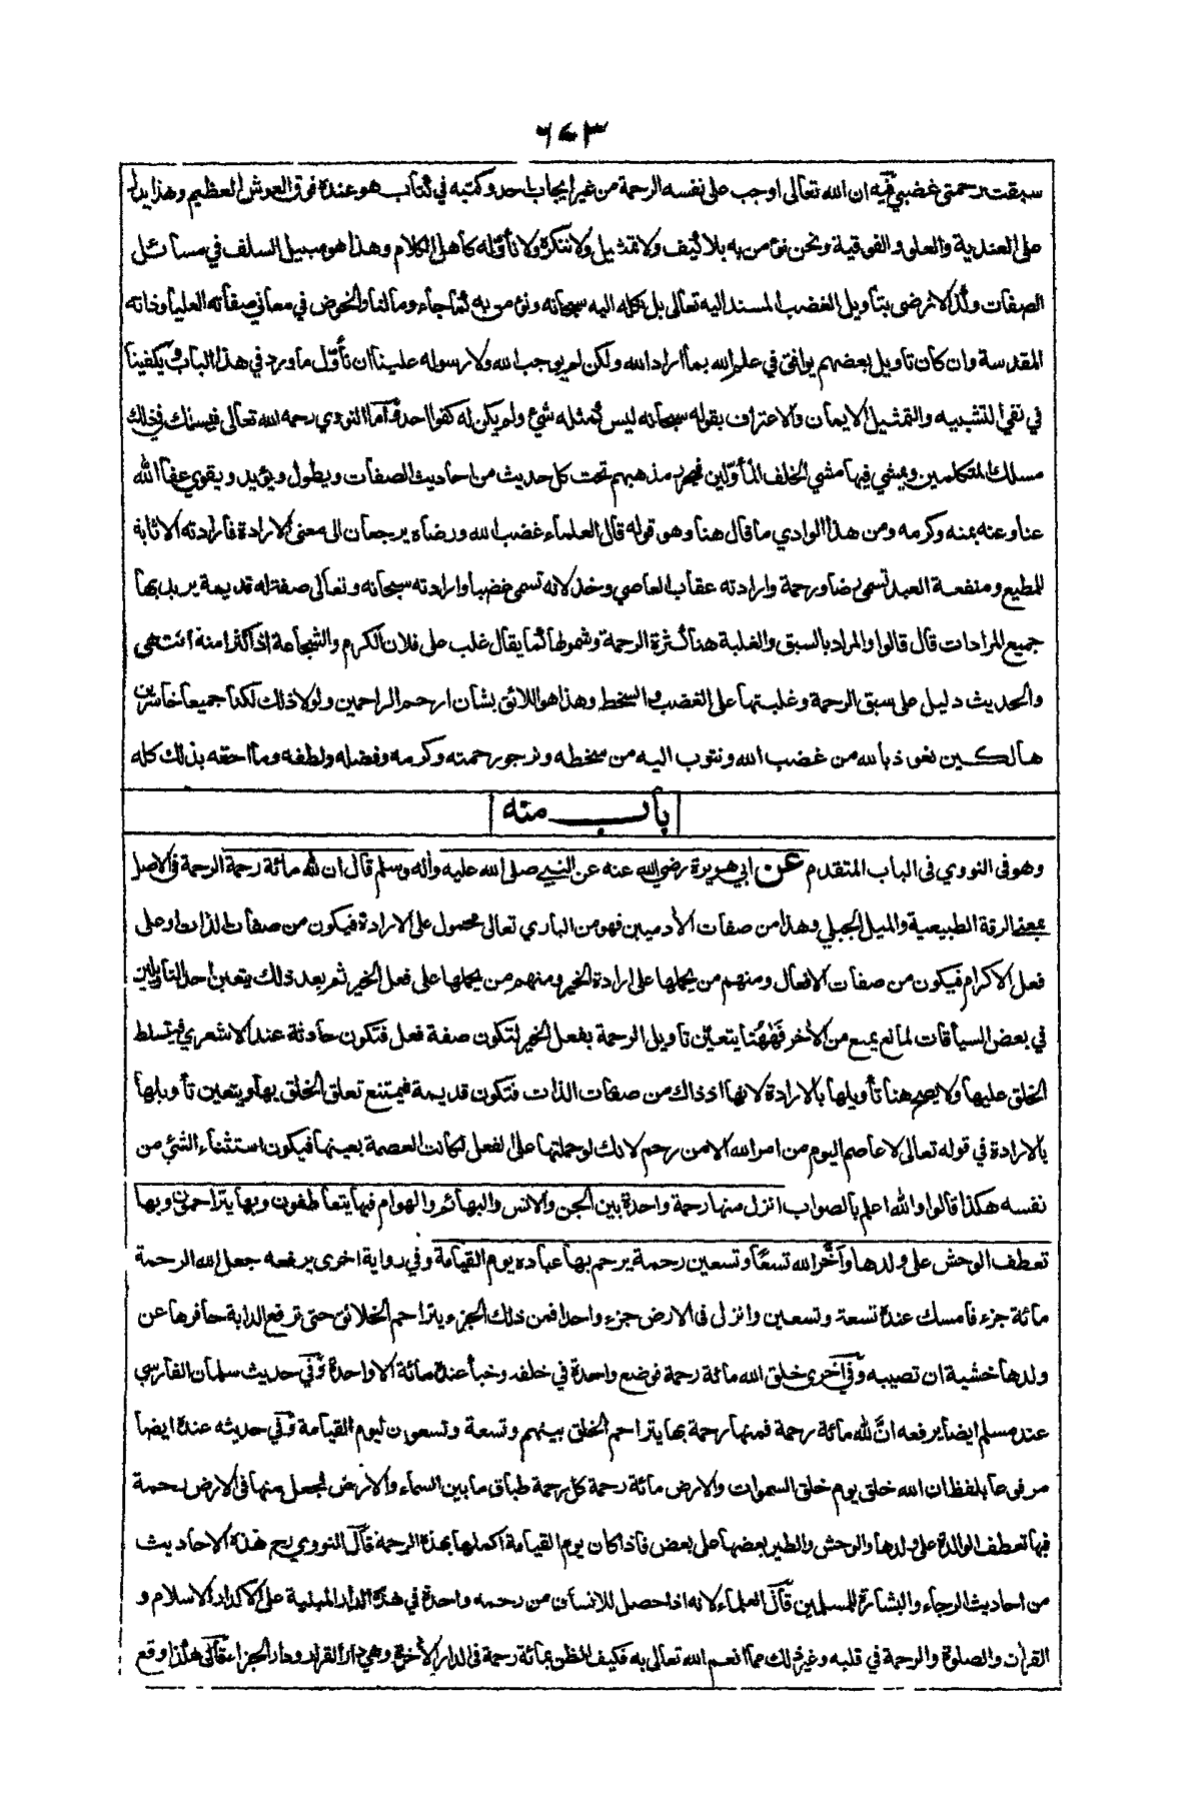 ٦٤٣
سبقت رحمتي غضبي فيه ان الله تعالى اوجب على نفسه الرحمة من غير ايجاب احد وكتبه في كتاب هو عنده فوق العرش العظيم وهذا يدل
على العندية والعلو والفوقية ونحن نؤمن به بلا كيف ولا تمثيل ولا ننكره ولا نأوله كأهل الكلام وهذا هو سبيل السلف في مسائل
الصفات ولذا لا نرضى بتأويل الغضب المسند اليه تعالى بل نكله اليه سبحانه ونؤمن به كما جاء وما لنا والخوض في معاني صفاته العليا وذاته
المقدسة وان كان تاويل بعضهم يوافق في علم الله بما اراد الله ولكن لم يوجب الله ولا رسوله علينا ان نأول ما ورد في هذا الباب ويكفينا
في نفي التشبيه والتمثيل الايمان والاعتراف بقوله سبحانه ليس كمثله شئ ولم يكن له كفوا احد واما النووي رحمه الله تعالى فيسلك في ذلك
مسلك المتكلمين ويمشي فيها مشي الخلف المأولين فيحرر مذهبهم تحت كل حديث من احاديث الصفات ويطول ويؤيد ويقوي عفا الله
عنا وعنه بمنه وكرمه ومن هذا الوادي ما قال هنا وهو قوله قال العلماء غضب الله ورضاه يرجعان الى معنى الارادة فارادته الاثابة
للمطيع ومنفعة العبد تسمى رضا ورحمة وارادته عقاب العاصي وخذلانه تسمى غضبا وارادته سبحانه وتعالى صفة له قديمة يريد بها
جميع المرادات قال قالوا والمراد بالسبق والغلبة هنا كثرة الرحمة وشمولها كما يقال غلب على فلان الكرم والشجاعة اذا كثرا منه انتهى
والحديث دليل على سبق الرحمة وغلبتها على الغضب والسخط وهذا هو اللائق بشان ارحم الراحمين ولولا ذلك لكنا جميعا خاسرين
هالكين نعوذ بالله من غضب الله ونتوب اليه من سخطه ونرجو رحمته وكرمه وفضله ولطفه وما احقه بذلك كله
باب منه
وهو في النووي في الباب المتقدم عن ابي هريرة رضي الله عنه عن النبي صلى الله عليه وأله وسلم قال ان لله مائة رحمة الرحمة في الاصل
بمعنى الرقة الطبيعية والميل الجبلي وهذا من صفات الأدميين فهو من الباري تعالى محمول على الارادة فيكون من صفات الذات او على
فعل الاكرام فيكون من صفات الافعال ومنهم من يحملها على ارادة الخير ومنهم من يحملها على فعل الخير ثم بعد ذلك يتعين احد التأويلين
في بعض السياقات لمانع يمنع من الأخر فههنا يتعين تاويل الرحمة بفعل الخير لتكون صفة فعل فتكون حادثة عند الاشعري فيتسلط
الخلق عليها ولا يصح هنا تأويلها بالارادة لانها اذ ذاك من صفات الذات فتكون قديمة فيمتنع تعلق الخلق بها ويتعين تأويلها
بالارادة في قوله تعالى لا عاصم اليوم من امر الله الا من رحم لانك لو حملتها على الفعل لكانت العصمة بعينها فيكون استثناء الشئ من
نفسه هكذا قالوا والله اعلم بالصواب انزل منها رحمة واحدة بين الجن والانس والبهائم والهوام فبها يتعاطفون وبها يتراحمون وبها
تعطف الوحش على ولدها وأخر الله تسعا وتسعين رحمة يرحم بها عباده يوم القيامة وفي رواية اخرى يرفعه جعل الله الرحمة
مائة جزء فامسك عنده تسعة وتسعين وانزل في الارض جزء واحدا فمن ذلك الجزء يتراحم الخلائق حتى ترفع الدابة حافرها عن
ولدها خشية ان تصيبه وفي اخرى خلق الله مائة رحمة فوضع واحدة في خلقه وخبأ عنده مائة الا واحدة وفي حديث سلمان الفارسي
عند مسلم ايضا يرفعه ان لله مائة رحمة فمنها رحمة بها يتراحم الخلق بينهم وتسعة وتسعون ليوم القيامة وفي حديثه عنده ايضا
مرفوعا بلفظ ان الله خلق يوم خلق السموات والارض مائة رحمة كل رحمة طباق ما بين السماء والارض فجعل منها في الارض رحمة
فبها تعطف الوالدة على ولدها والوحش والطير بعضها على بعض فاذا كان يوم القيامة اكملها بهذه الرحمة قال النووي رح هذه الاحاديث
من احاديث الرجاء والبشارة للمسلمين قال العلماء لانه اذا حصل للانسان من رحمة واحدة في هذه الدار المبنية على الاكدار الاسلام و
القرأن والصلوة والرحمة في قلبه وغير ذلك مما انعم الله تعالى به فكيف الظن بمائة رحمة في الدار الأخرة وهي دار القرار ودار الجزاء قال هكذا وقع